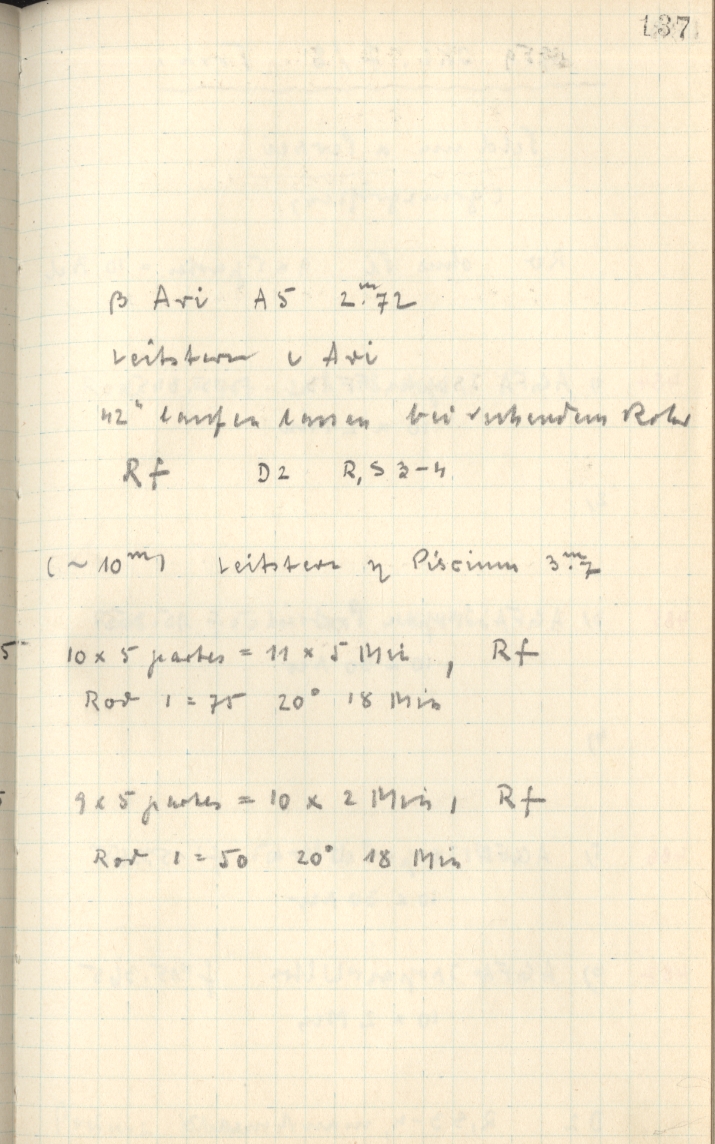 137
β Ari A5 2ᵐ.72
Leitstern ι Ari
42" laufen lassen bei ruhendem Rohr
Rf D2 R, S 3-4
(~ 10ᵐ) Leitstern η Piscium 3ᵐ.7
5 10 x 5 partes = 11 x 5 Min, Rf
Rod 1 = 75 20° 18 Min
9 x 5 partes = 10 x 2 Min, Rf
Rod 1 = 50 20° 18 Min